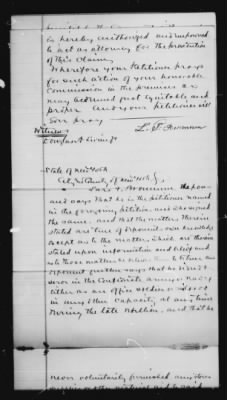 is hereby authorized and empowered
to act as attorney for the prosecution
of this Claim,
Wherefore your Petitioner prays
for such action of your honorable
Commission in the premises as
may be deemed just equitable and
proper And your petitioner will
Ever pray
Witness
State of New York
City & County of New York } ss.
being
and says that he is the petitioner named
in the foregoing petition and who signed
the same. And that the matters therein
stated are true of deponent's own knowledge
except as to the matters which are therein
stated upon information and belief and
as to those matters he believes them to be true and
deponent further says that he did not
serve in the Confederate army or navy
either as an officer soldier or
in any other Capacity at any time
during the late Rebellion, and that he
never voluntarily furnished any stores
supplies or other material aid to said